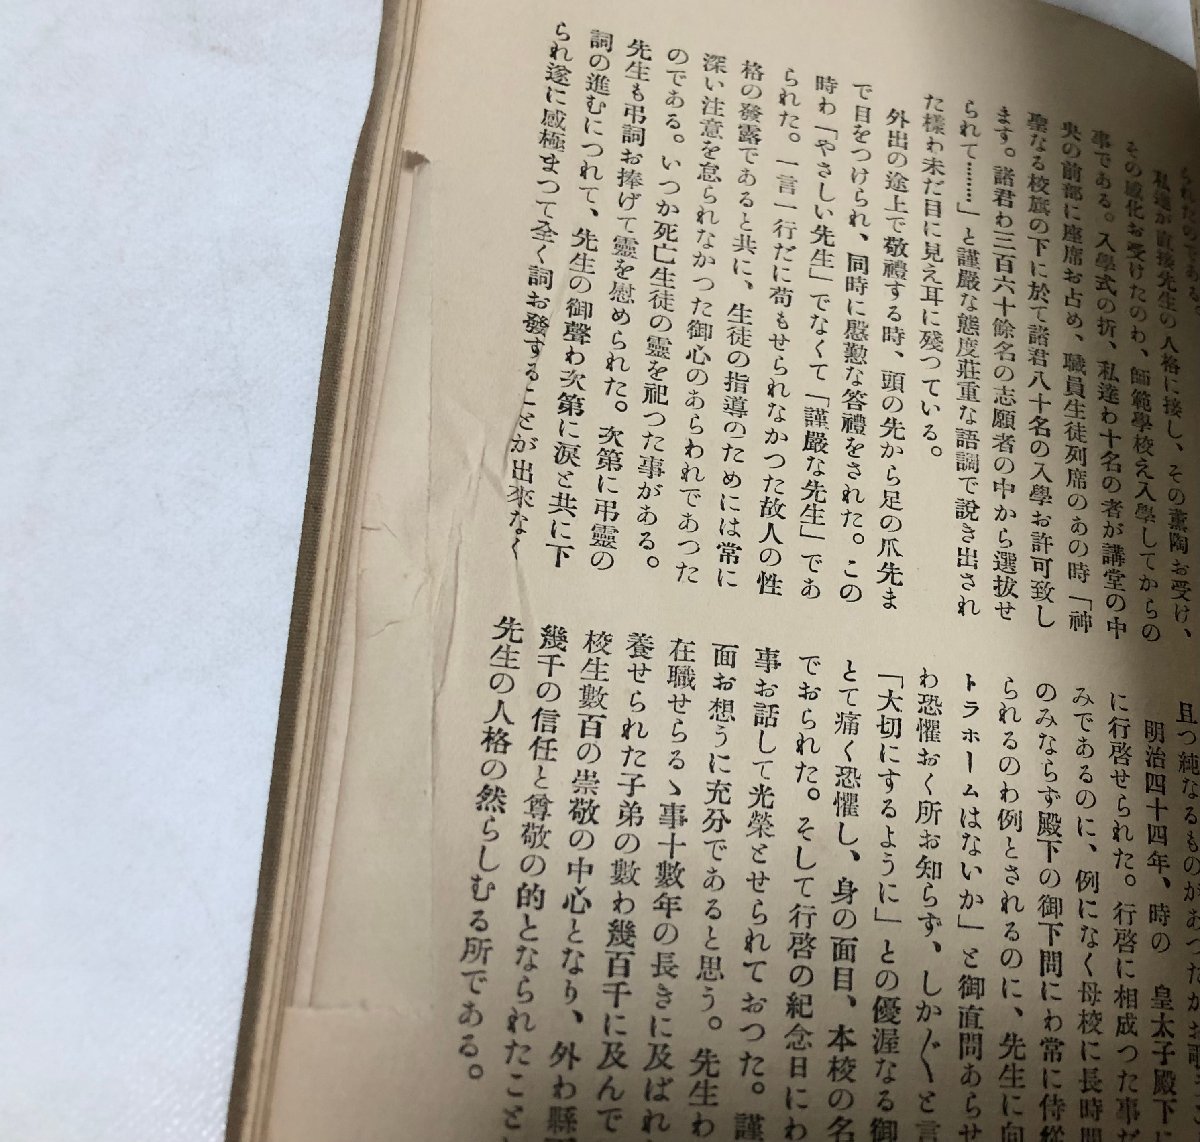 私達が直接先生の人格に接し、その薫陶お受け、
その感化お受けたのわ、師範學校え入學してからの
事である。入學式の折、私達わ十名の者が講堂の中
央の前部に座席お占め、職員生徒列席のあの時「神
聖なる校旗の下に於て諸君八十名の入學お許可致し
ます。諸君わ三百六十餘名の志願者の中から選拔せ
られて………」と謹嚴な態度莊重な語調で說き出され
た樣わ未だ目に見え耳に殘つている。
外出の途上で敬禮する時、頭の先から足の爪先ま
で目をつけられ、同時に慇懃な答禮をされた。この
時わ「やさしい先生」でなくて「謹嚴な先生」であ
られた。一言一行だに苟もせられなかつた故人の性
格の發露であると共に、生徒の指導のためには常に
深い注意を怠られなかつた御心のあらわれであつた
のである。いつか死亡生徒の靈を祀つた事がある。
先生も弔詞お捧げて靈を慰められた。次第に弔靈の
詞の進むにつれて、先生の御聲わ次第に涙と共に下
られ遂に感極まつて全く詞お發することが出來なく
且つ純なるものがあつたか
明治四十四年、時の 皇太子殿下に
に行啓せられた。行啓に相成つた事だ
みであるのに、例になく母校に長時間
のみならず殿下の御下問にわ常に侍從
られるのわ例とされるのに、先生に向
トラホームはないか」と御直問あらせ
わ恐懼おく所お知らず、しかく〳〵と言
「大切にするように」との優渥なる御
とて痛く恐懼し、身の面目、本校の名
でおられた。そして行啓の紀念日にわ
事お話して光榮とせられておつた。謹
面お想うに充分であると思う。先生わ
在職せらるゝ事十數年の長きに及ばれ
養せられた子弟の數わ幾百千に及んで
校生數百の崇敬の中心となり、外わ縣
幾千の信任と尊敬の的となられたこと
先生の人格の然らしむる所である。